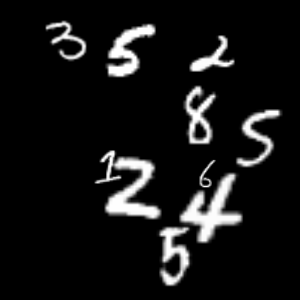 3 5 2
8 5
1 2 6 4
5